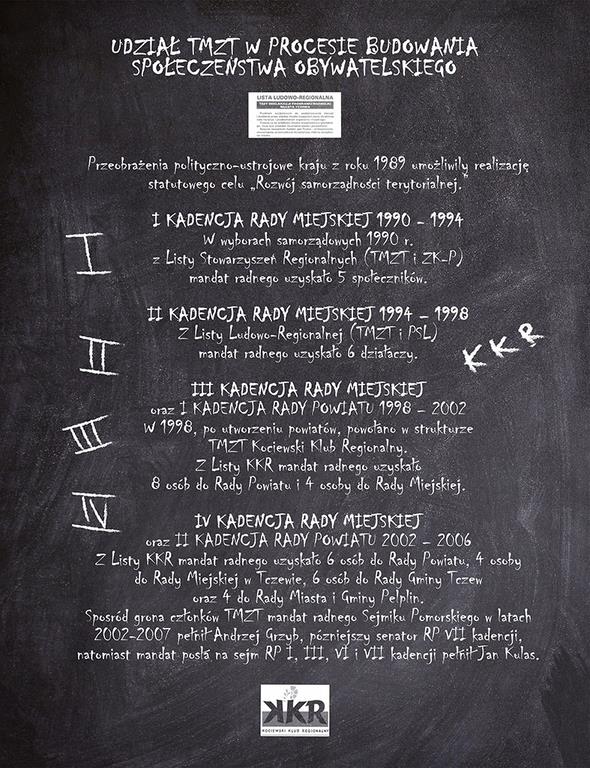 UDZIAŁ TMZT W PROCESIE BUDOWANIA
SPOŁECZEŃSTWA OBYWATELSKIEGO
LISTA LUDOWO-REGIONALNA
Przeobrażenia polityczno-ustrojowe kraju z roku 1989 umożliwiły realizację
statutowego celu „Rozwój samorządności terytorialnej.”
I KADENCJA RADY MIEJSKIEJ 1990 – 1994
W wyborach samorządowych 1990 r.
z Listy Stowarzyszeń Regionalnych (TMZT i ZK-P)
mandat radnego uzyskało 5 społeczników.
I
II KADENCJA RADY MIEJSKIEJ 1994 – 1998
Z Listy Ludowo-Regionalnej (TMZT i PSL)
mandat radnego uzyskało 6 działaczy.
II
KKR
III KADENCJA RADY MIEJSKIEJ
oraz I KADENCJA RADY POWIATU 1998 – 2002
W 1998, po utworzeniu powiatów, powołano w strukturze
TMZT Kociewski Klub Regionalny.
Z Listy KKR mandat radnego uzyskało
8 osób do Rady Powiatu i 4 osoby do Rady Miejskiej.
III
IV
IV KADENCJA RADY MIEJSKIEJ
oraz II KADENCJA RADY POWIATU 2002 – 2006
Z Listy KKR mandat radnego uzyskało 6 osób do Rady Powiatu, 4 osoby
do Rady Miejskiej w Tczewie, 6 osób do Rady Gminy Tczew
oraz 4 do Rady Miasta i Gminy Pelplin.
Spośród grona członków TMZT mandat radnego Sejmiku Pomorskiego w latach
2002-2007 pełnił Andrzej Grzyb, późniejszy senator RP VII kadencji,
natomiast mandat posła na sejm RP I, III, VI i VII kadencji pełnił Jan Kulas.
KKR
KOCIEWSKI KLUB REGIONALNY